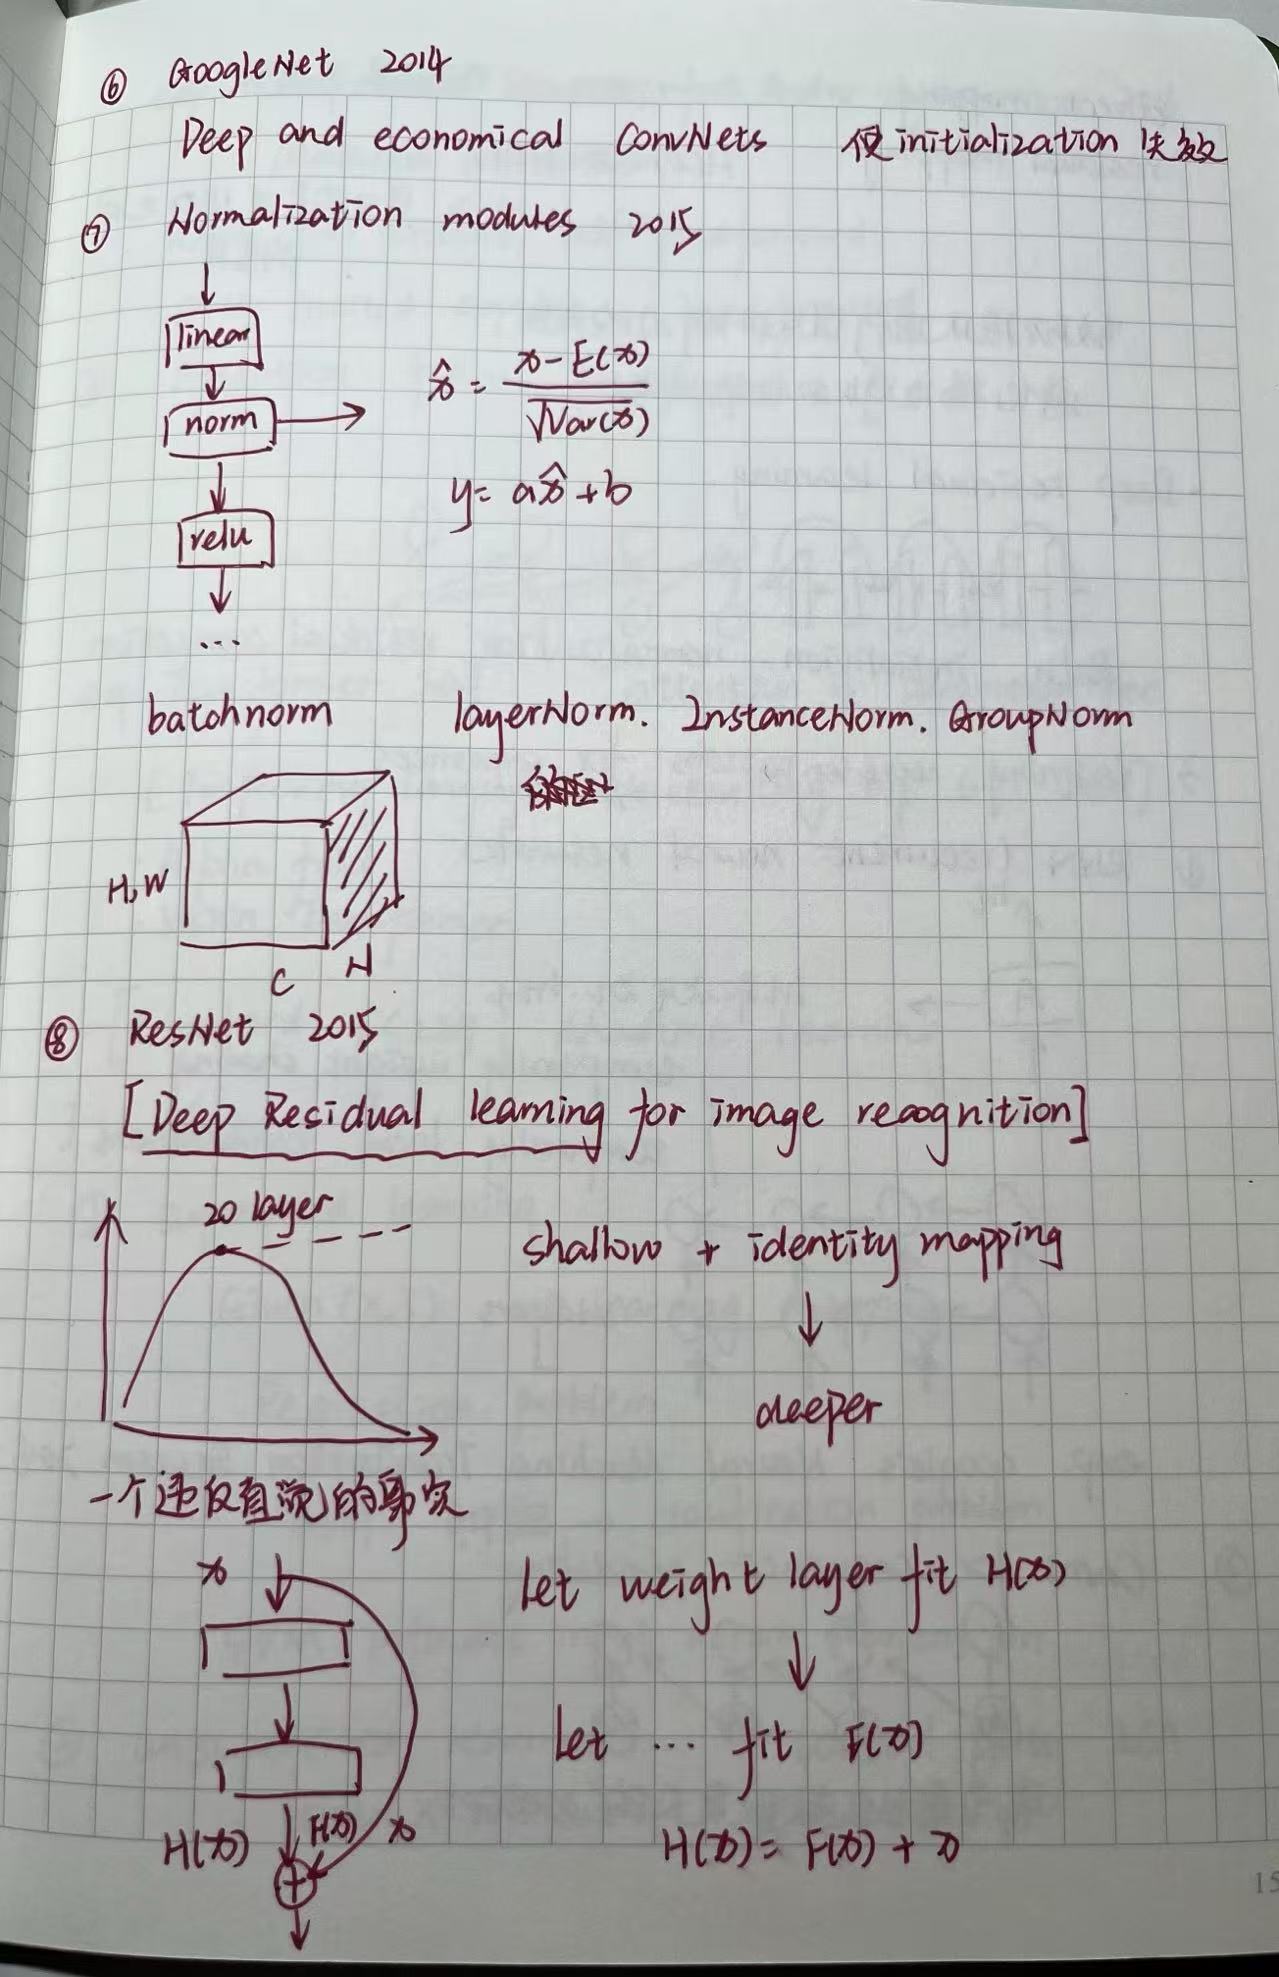 ⑥ GoogleNet 2014
Deep and economical ConvNets 使initialization 失效
⑦ Normalization modules 2015
linear
norm
x̂ = (x - E(x)) / √Var(x)
y = ax̂ + b
relu
...
batchnorm layerNorm. InstanceNorm. GroupNorm
H,W
C N
⑧ ResNet 2015
[Deep Residual learning for image recognition]
20 layer
shallow + identity mapping
deeper
一个违反直觉的事实
x
Let weight layer fit H(x)
Let ... fit F(x)
H(x) F(x) x
H(x) = F(x) + x
15